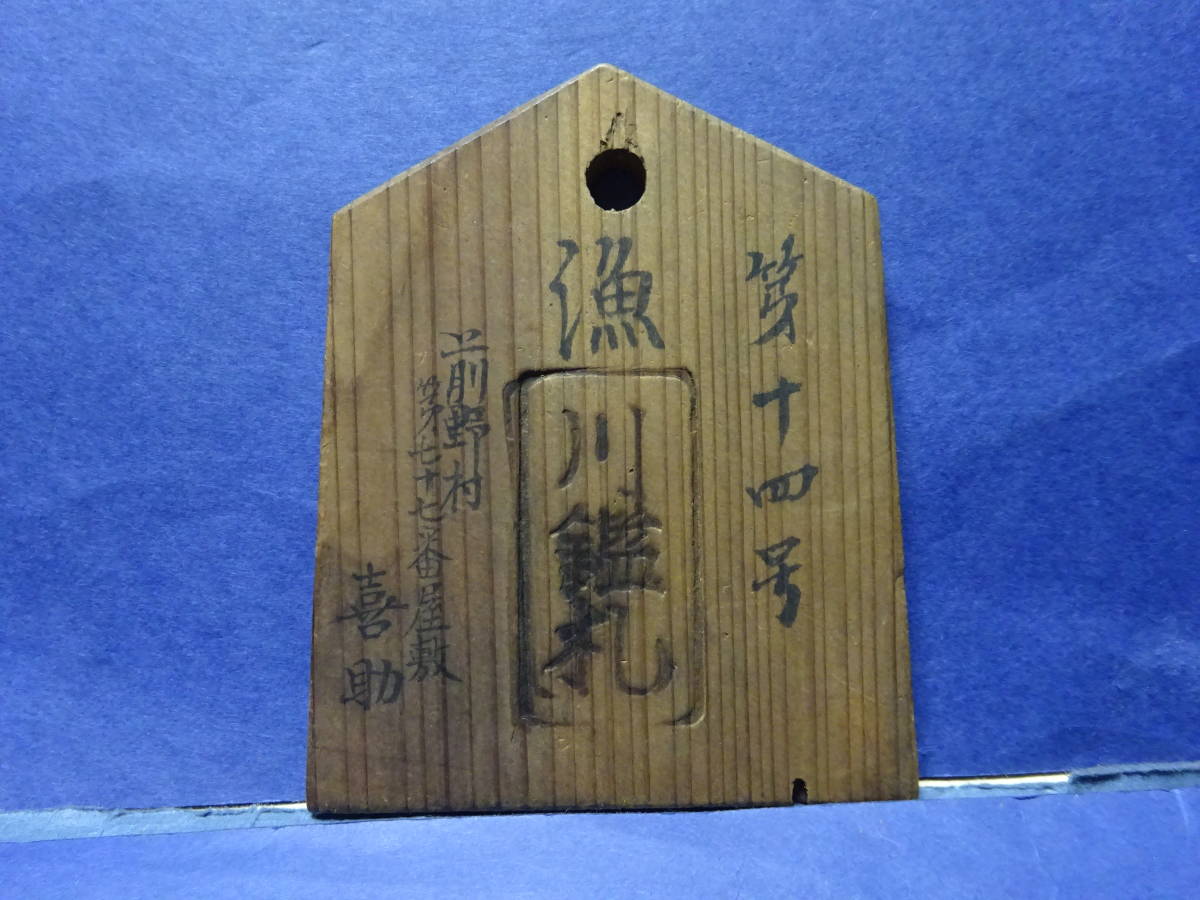 第十四号
漁川鑑札
上前野村
第七十七番屋敷
喜助